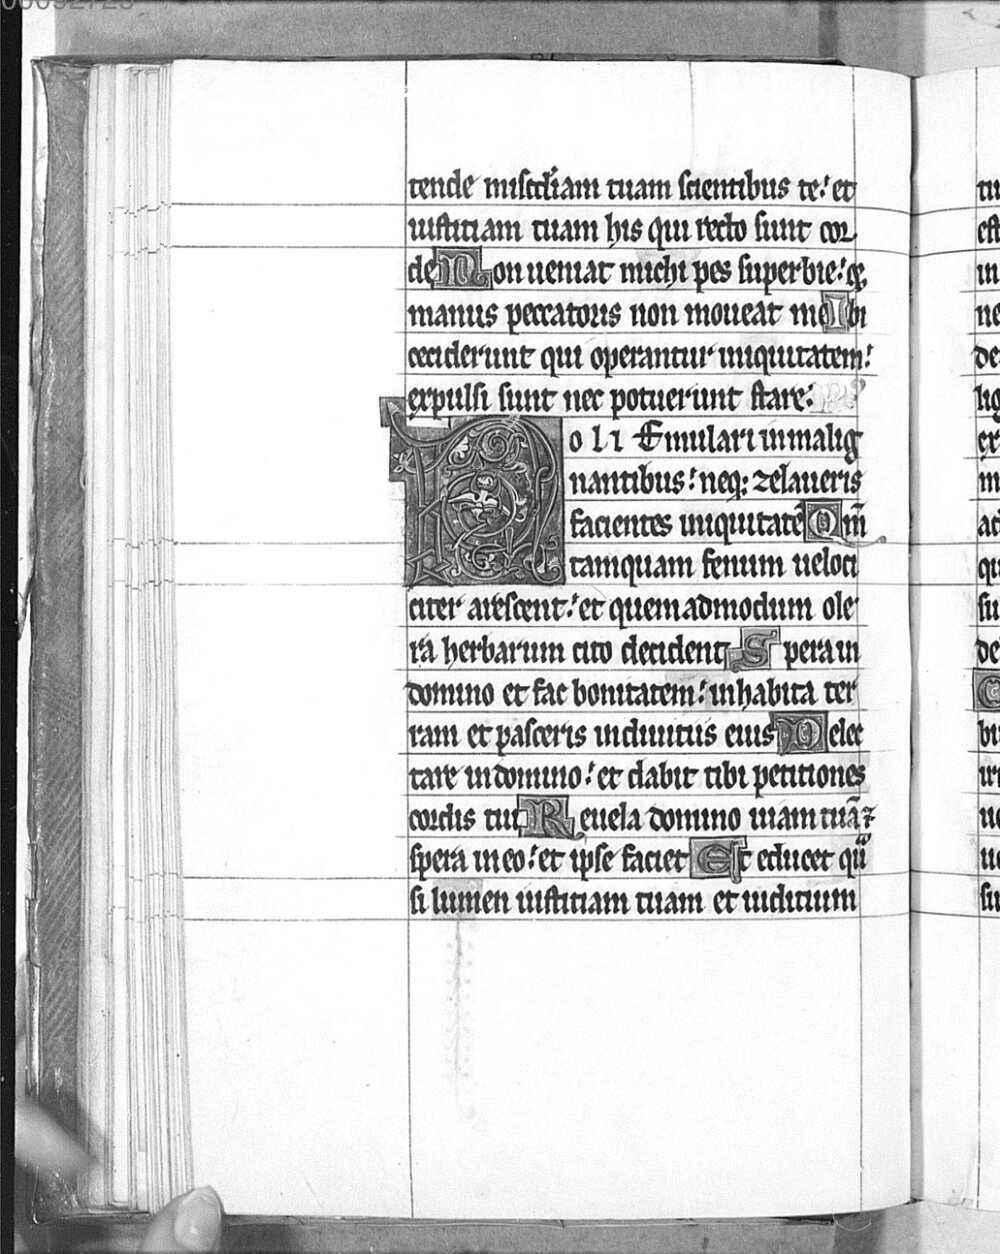 00092723
tende misćdiam tuam scientibus te: et
iustitiam tuam his qui recto sunt cor
de Non ueniat michi pes superbie: &
manus peccatoris non moueat me Ibi
ceciderunt qui operantur iniquitatem:
expulsi sunt nec potuerunt stare:
Noli Emulari in malig
nantibus: neq; zelaueris
facientes iniquitatē Qm̄
tamquam fenum ueloci
citer arescent: et quemadmodum ole
ra herbarum cito decident Spera in
domino et fac bonitatem: inhabita ter
ram et pasceris in diuitiis eius Delec
tare in domino: et dabit tibi petitiones
cordis tui Reuela domino uiam tuā ⁊
spera in eo: et ipse faciet Et educet q̈i
si lumen iustitiam tuam et iudicium